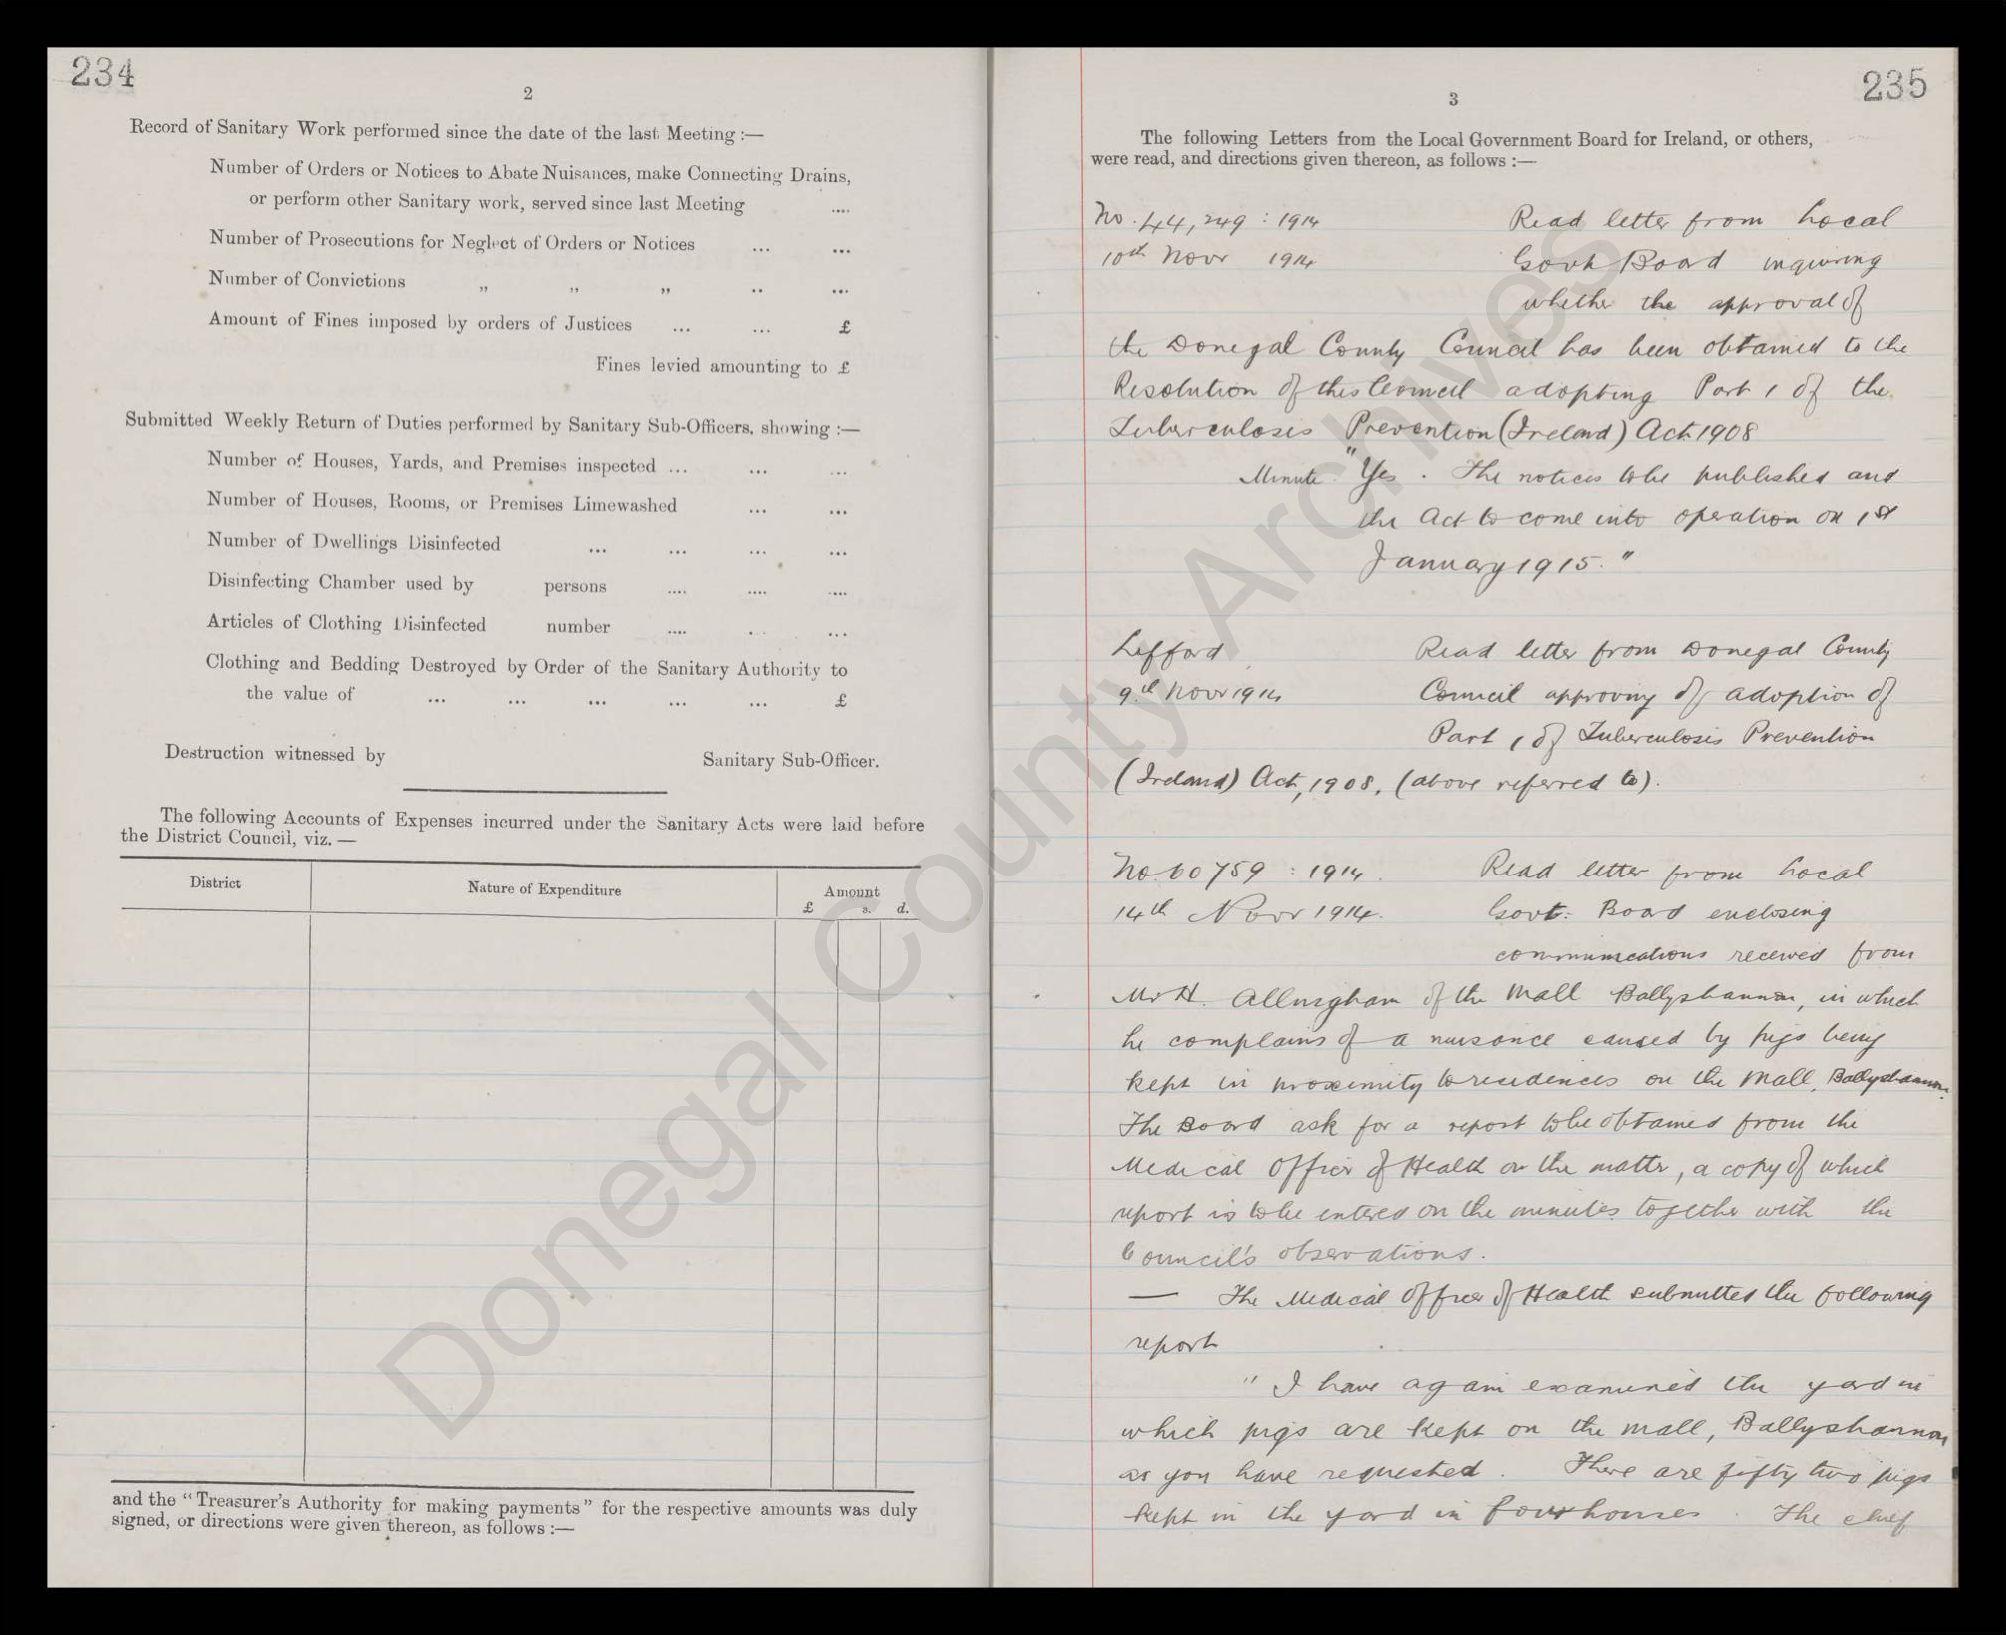 234
2
Record of Sanitary Work performed since the date of the last Meeting :—
Number of Orders or Notices to Abate Nuisances, make Connecting Drains,
or perform other Sanitary work, served since last Meeting ....
Number of Prosecutions for Neglect of Orders or Notices ... ...
Number of Convictions „ „ „ .. ...
Amount of Fines imposed by orders of Justices ... ... £
Fines levied amounting to £
Submitted Weekly Return of Duties performed by Sanitary Sub-Officers, showing :—
Number of Houses, Yards, and Premises inspected ... ... ...
Number of Houses, Rooms, or Premises Limewashed ... ...
Number of Dwellings Disinfected ... ... ... ...
Disinfecting Chamber used by persons .... .... ....
Articles of Clothing Disinfected number .... ... ...
Clothing and Bedding Destroyed by Order of the Sanitary Authority to
the value of ... ... ... ... ... £
Destruction witnessed by Sanitary Sub-Officer.
The following Accounts of Expenses incurred under the Sanitary Acts were laid before
the District Council, viz. —
District Nature of Expenditure Amount
£ s. d.
and the "Treasurer's Authority for making payments" for the respective amounts was duly
signed, or directions were given thereon, as follows :—
235
3
The following Letters from the Local Government Board for Ireland, or others,
were read, and directions given thereon, as follows :—
No. 44,249 : 1914 Read letter from Local
10th Novr 1914 Govt Board inquiring
whether the approval of
the Donegal County Council has been obtained to the
Resolution of this Council adopting Part 1 of the
Tuberculosis Prevention (Ireland) Act 1908
Minute "Yes. The notices to be published and
the Act to come into operation on 1st
January 1915."
Lifford Read letter from Donegal County
9th Novr 1914 Council approving of adoption of
Part 1 of Tuberculosis Prevention
(Ireland) Act, 1908, (above referred to).
No. 60759 : 1914. Read letter from Local
14th Novr 1914. Govt. Board enclosing
communications received from
Mr H. Allingham of the Mall Ballyshannon, in which
he complains of a nuisance caused by pigs being
kept in proximity to residences on the Mall, Ballyshannon.
The Board ask for a report to be obtained from the
Medical Officer of Health on the matter, a copy of which
report is to be entered on the minutes together with the
Council's observations.
— The Medical Officer of Health submitted the following
report
"I have again examined the yard in
which pigs are kept on the Mall, Ballyshannon
as you have requested. There are fifty two pigs
kept in the yard in four houses. The chief
Donegal County Archives